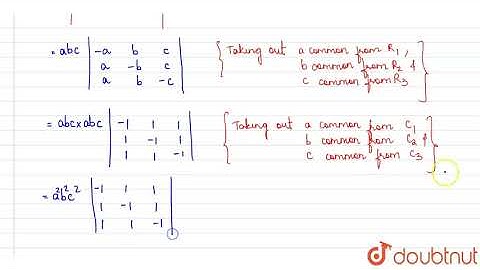 = abc | -a b c | { Taking out a common from R1,
| a -b c | b common from R2 &
| a b -c | c common from R3 }
= abc x abc | -1 1 1 | { Taking out a common from C1
| 1 -1 1 | b common from C2 &
| 1 1 -1 | c common from C3 }
= a²b²c² | -1 1 1 |
| 1 -1 1 |
| 1 1 -1 |
doubtnut